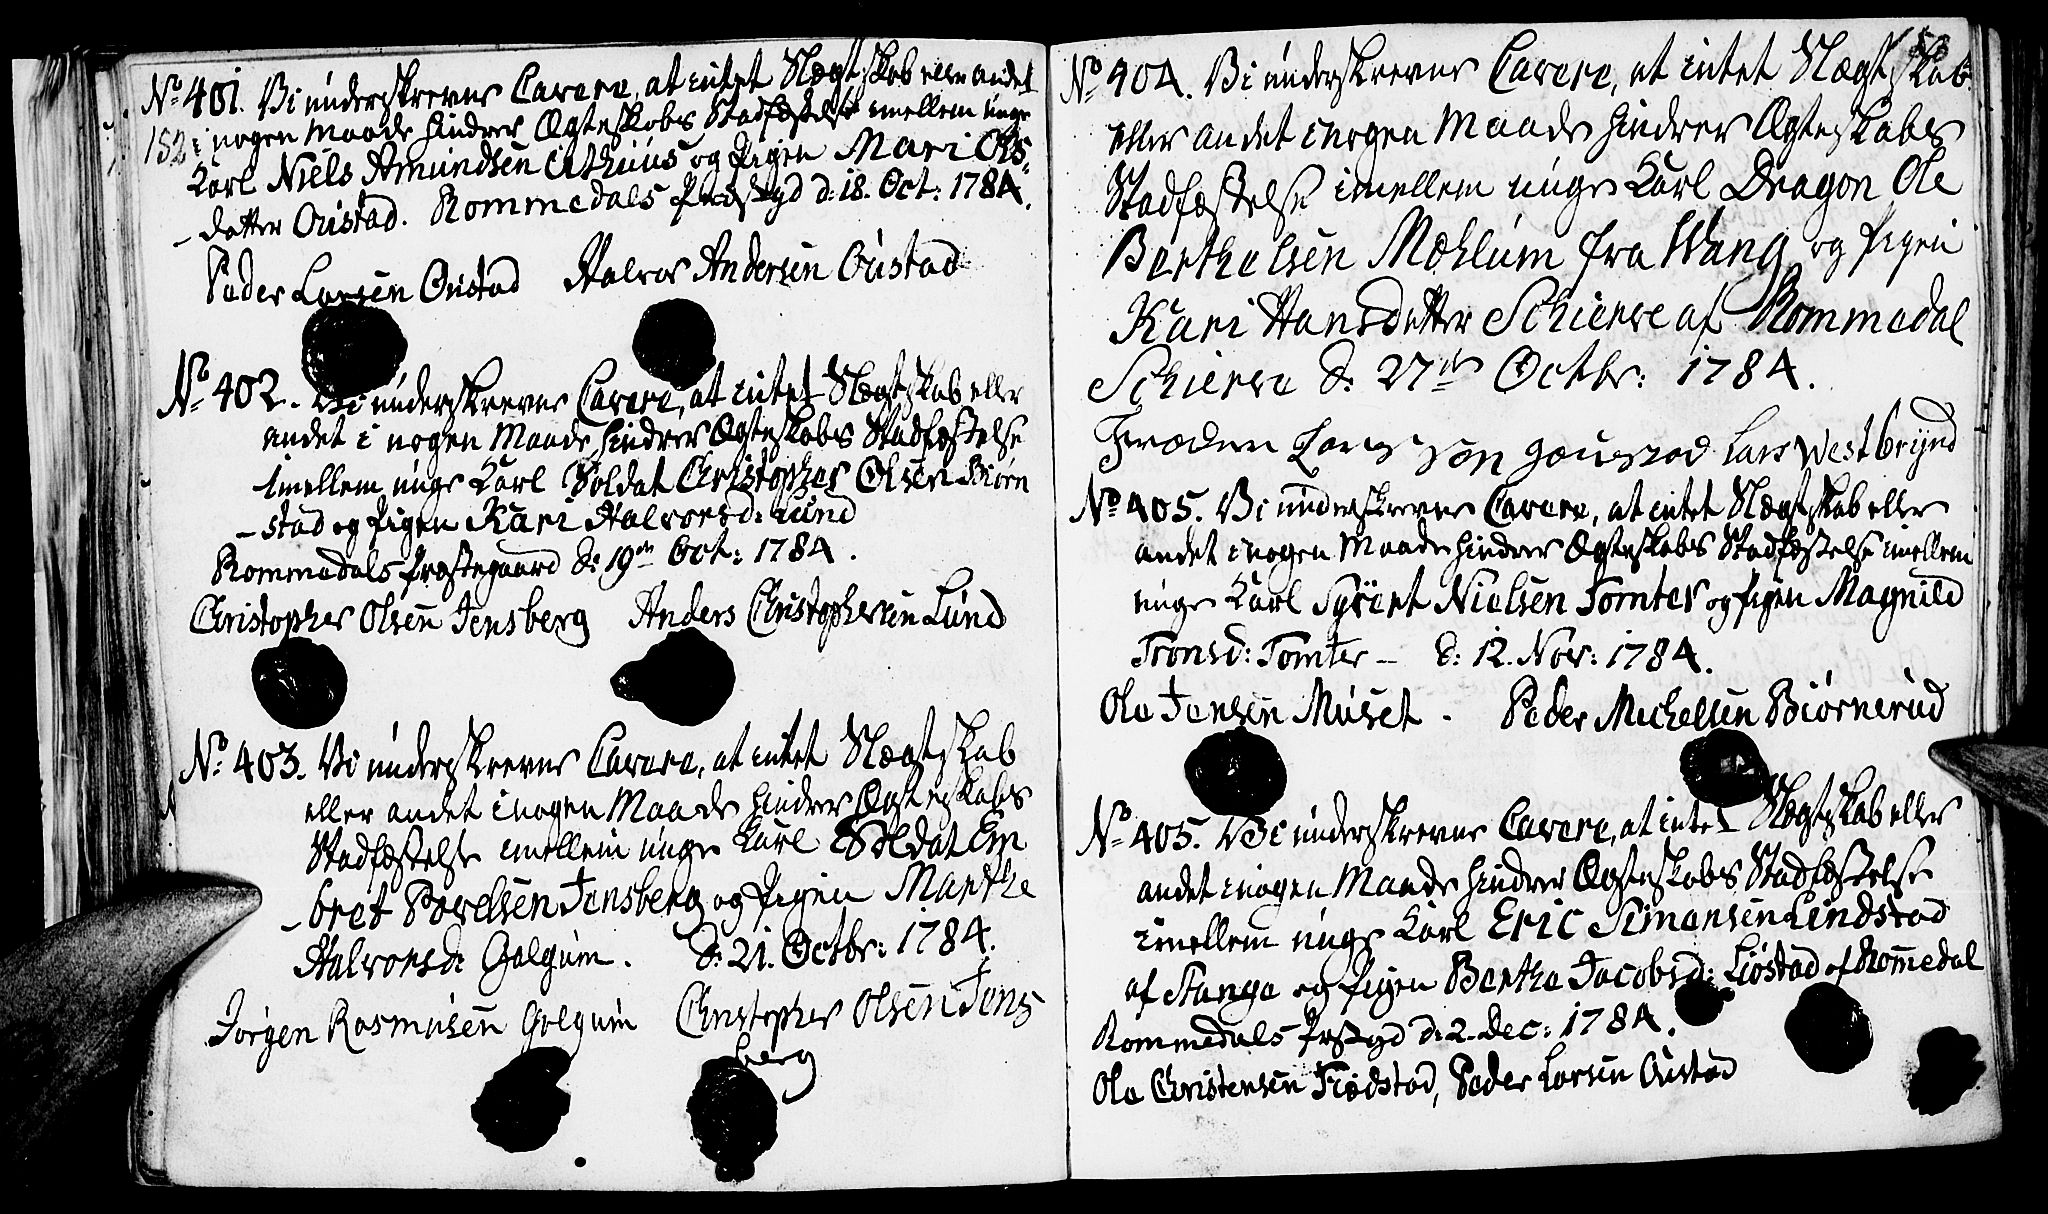 No 401. Vi underskrevne Cavere, at intet Slægtskab eller andet
152 i nogen Maade hindrer Ægteskabs Stadfæstelse imellem unge
Karl Niels Amundsen Athuus og Pigen Mari Ols-
-datter Oustad. Rommedals Præstgd d: 18. Oct: 1784.
Peder Larsen Oustad Halvor Andersen Oustad
No 402. Vi underskrevne Cavere, at intet Slægtskab eller
andet i nogen Maade hindrer Ægteskabs Stadfæstelse
imellem unge Karl Soldat Christopher Olsen Biørn
-stad og Pigen Kari Halvorsd: Lund
Rommedals Præstegaard d: 19de Oct: 1784.
Christopher Olsen Jensberg Anders Christophersen Lund
No 403. Vi underskrevne Cavere, at intet Slægtskab
eller andet i nogen Maade hindrer Ægteskabs
Stadfæstelse imellem unge Karl Soldat Em
-bret Povelsen Jensberg og Pigen Marthe
Halvorsd: Galgum. d: 21. Octbr: 1784.
Jørgen Rasmusen Galgum Christopher Olsen Jens
berg
No 404. Vi underskrevne Cavere, at intet Slægtskab
eller andet i nogen Maade hindrer Ægteskabs
Stadfæstelse imellem unge Karl Dragon Ole
Berthelsen Mæhlum fra Wang og Pigen
Kari Hansdatter Schierve af Rommedal
Schierve d: 27de Octbr: 1784.
Lars Westbrynd
No 405. Vi underskrevne Cavere, at intet Slægtskab eller
andet i nogen Maade hindrer Ægteskabs Stadfæstelse imellem
unge Karl Syvert Nielsen Tomter og Pigen Magnild
Tronsd: Tomter — d: 12. Nov: 1784.
Ole Jensen Muset. Peder Michelsen Biørnerud
No 405. Vi underskrevne Cavere, at intet Slægtskab eller
andet i nogen Maade hindrer Ægteskabs Stadfæstelse
imellem unge Karl Eric Simensen Lindstad
af Stange og Pigen Berthe Jacobsd: Liostad af Romedal
Rommedals Præstgd d: 2. Dec: 1784.
Ole Christensen Fiødstad, Peder Larsen Oustad